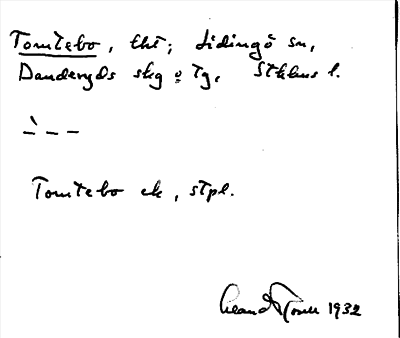 Tomtebo, tht; Lidingö sn,
Danderyds skg o Tg, Sthlms l.
ˋ – –
Tomtebo ek, stpl.
1932